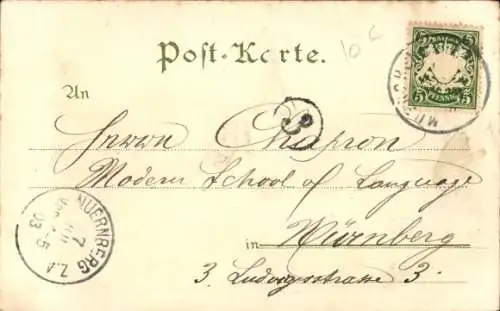 10 c
Post-Karte.
5 5
5 PFENNIG 5
MUENCH
An
3
Herrn Chapron
Modern School of Language
in Nürnberg
3. Ludwigsstrasse 3.
NUERNBERG 2.A
7
03